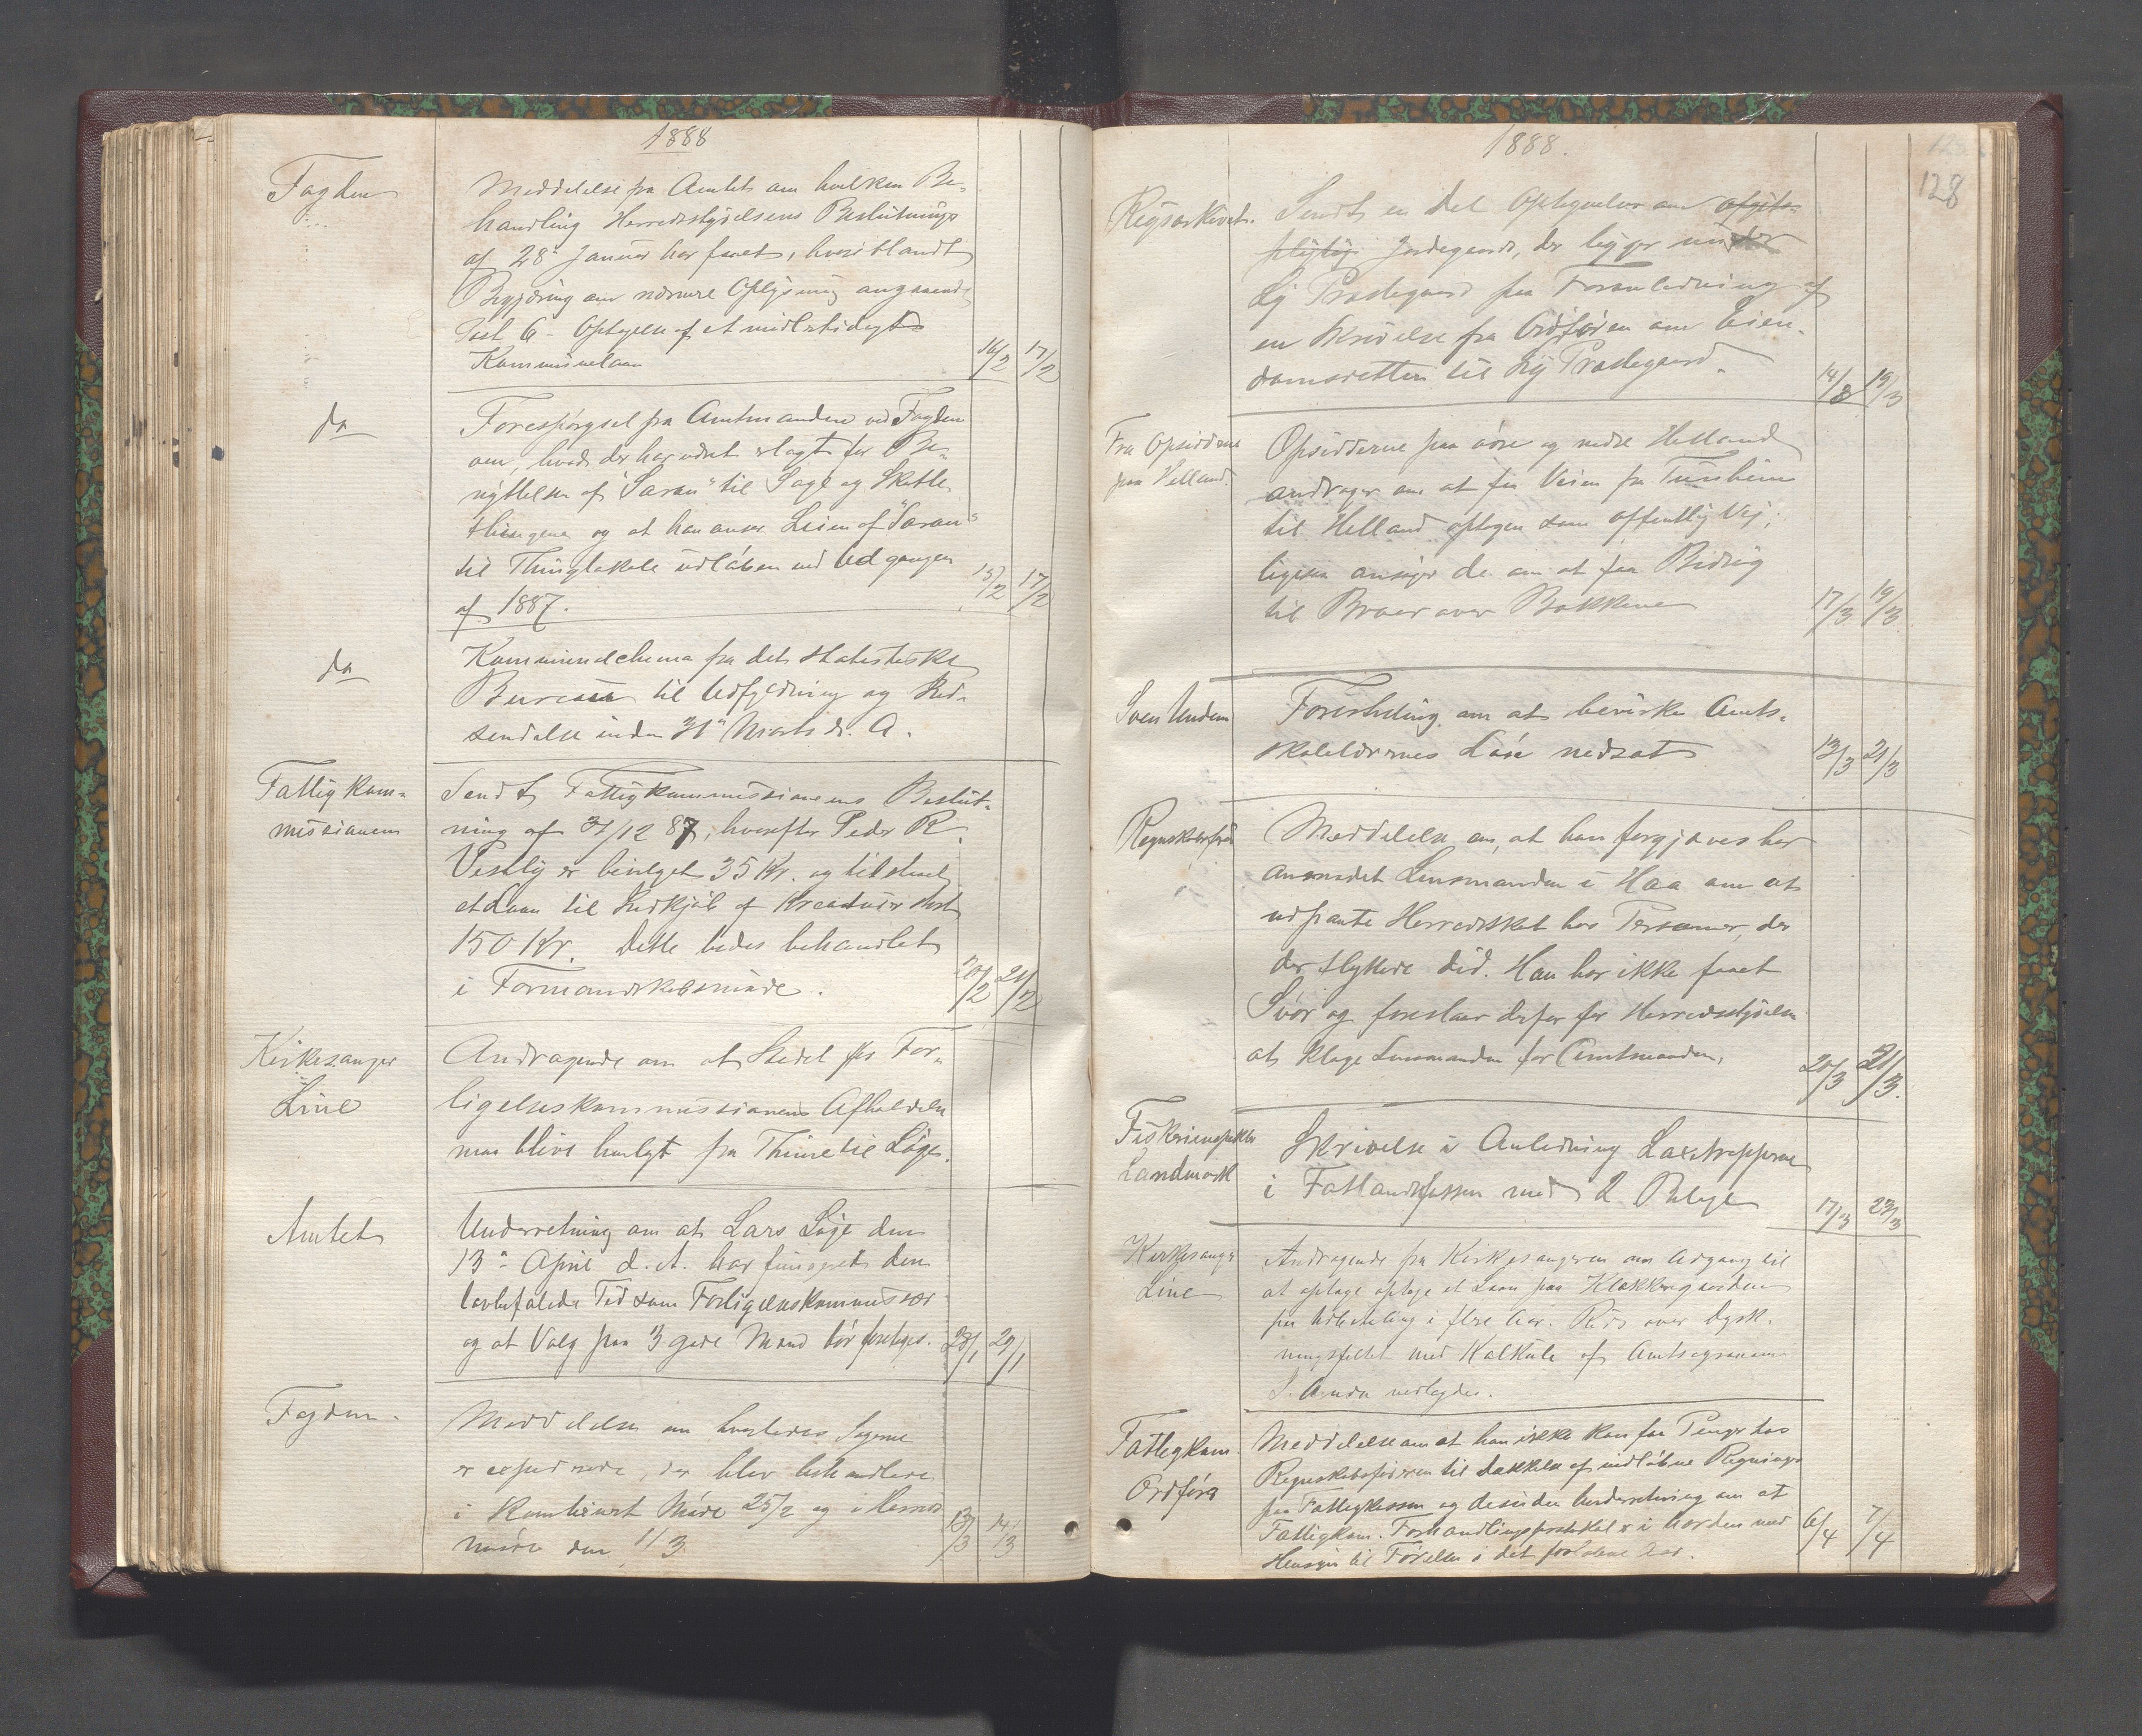 1888
Fogden
Meddelelse fra Amtet om hvilken Be-
handling Herredsstyrelsens Beslutninger
af 28de Januar har faaet, hvoriblandt
Begjæring om nærmere Oplysning angaaende
Post 6 - Optagelse af et midlertidigt
Kommunelaan
16/2 17/2
do
Forespørgsel fra Amtmanden ved Fogden
om, hvad der har været erlagt for Be-
nyttelsen af "Saron" til Sage og Skatte-
thingene og at han anser Leien af "Saron"
til Thinglokale udløben ved Udgangen
af 1887.
15/2 17/2
do
Kommuneschema fra det statistiske
Bureau til Udfyldning og Ind-
sendelse inden 31te Marts d. A.
Fattigkom-
missionen
Sendt Fattigkommissionens Beslut-
ning af 31/12 87, hvorefter Peder R.
Vestly er bevilget 35 Kr. og tilstaaet
et Laan til Indkjøb af Kreaturer stort
150 Kr. Dette bedes behandlet
i Formandskabsmøde.
20/2 21/2
Kirkesanger
Line
Andragende om at Stedet for For-
ligelseskommissionens Afholdelse
maa blive henlagt fra Thime til Lÿge.
Amtet
Underretning om at Lars Lÿge den
13de April d. A. har fungeret den
lovbefalede Tid som Forligelseskommissær
og at Valg paa 3 gode Mænd bør foretages.
28/1 29/1
Fogden.
Meddelelse om hvorledes Sagerne
er expederede, der blev behandlede
i kombineret Møde 25/2 og i Herreds-
møde den 1/3
13/3 14/3
1888.
128
Rigsarkivet.
Sendt en Del Optegnelser om afgifts-
pligtige Jordegods, der ligger under
Lÿ Prestegaard paa Foranledning af
en Skrivelse fra Ordføren om Eien-
domsretten til Lÿ Prestegaard.
14/3 19/3
Fra Opsidderne
paa Helland.
Opsidderne paa øvre og nedre Helland
andrager om at faa Veien fra Tunheim
til Helland optagen som offentlig Vej;
ligesaa ansøger de om at faa Bidrag
til Broer over Bækkene
17/3 19/3
Sven Undem
Forestilling om at bevirke Amts-
skolelærernes Løn nedsat
13/3 21/3
Regnskabsfører
Meddelelse om, at han forgjæves har
anmodet Lensmanden i Haa om at
udpante Herredsskat hos Personer, der
der flyttede did. Han har ikke faaet
Svar og foreslaar derfor for Herredsstyrelsen
at klage Lensmanden for Amtmanden,
20/3 21/3.
Fiskeriinspektør
Landmark
Skrivelse i Anledning Laxetrapperne
i Fotlandsfossen med 2 Bilage
17/3 23/3
Kirkesanger
Line
Andragende fra Kirkesangeren om Adgang til
at optage optage et Laan paa Klokkergaarden
paa Udbetaling i flere Aar. Rids over Dyrk-
ningsfeltet med Kalkule af Amtsagronom
S. Anda vedlagdes.
Fattigkom.
Ordfører
Meddelelse om at han ikke kan faa Penge hos
Regnskabsføreren til Dækkelse af indløbne Regninger
paa Fattigkassen og desuden Underretning om at
Fattigkom. Forhandlingsprotokol er i Uorden med
Hensyn til Førelse i det forløbne Aar.
6/4 7/4